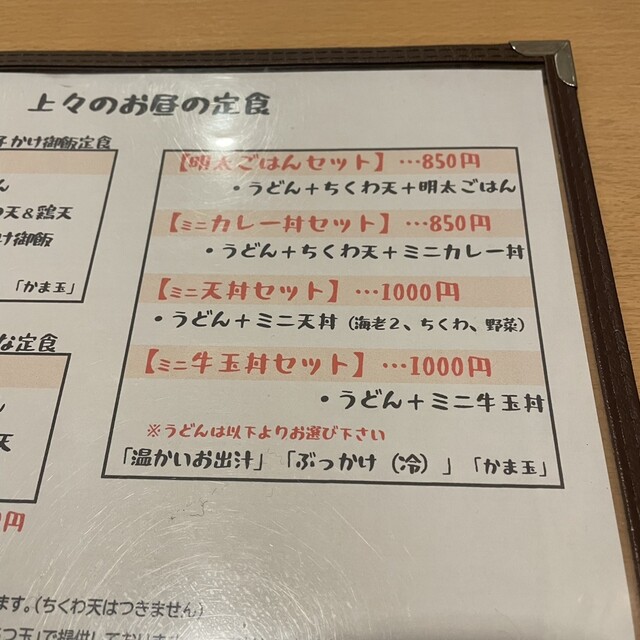 上々のお昼の定食
かけ御飯定食
ん
天&鶏天
け御飯
「かま玉」
な定食
ん
天
円
【明太ごはんセット】…850円
・うどん+ちくわ天+明太ごはん
【ミニカレー丼セット】…850円
・うどん+ちくわ天+ミニカレー丼
【ミニ天丼セット】…1000円
・うどん+ミニ天丼(海老2、ちくわ、野菜)
【ミニ牛玉丼セット】…1000円
・うどん+ミニ牛玉丼
※うどんは以下よりお選び下さい
「温かいお出汁」「ぶっかけ(冷)」「かま玉」
ます。(ちくわ天はつきません)
つ玉」で提供しており